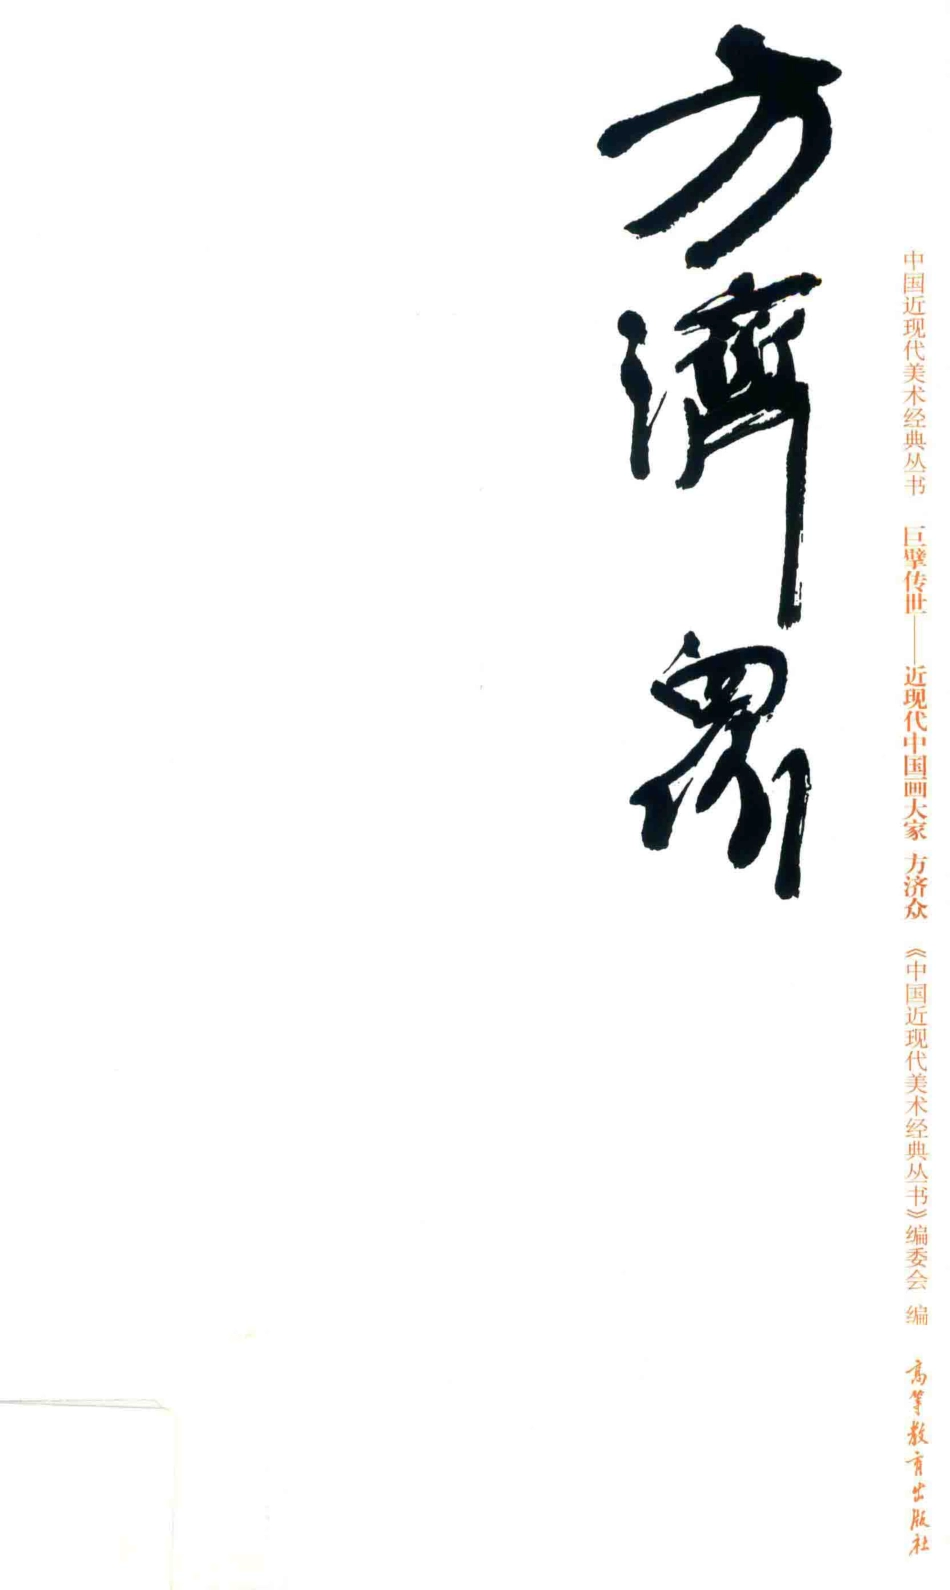 方濟眾
中国近现代美术经典丛书
巨擘传世——近现代中国画大家 方济众
《中国近现代美术经典丛书》编委会 编
高等教育出版社